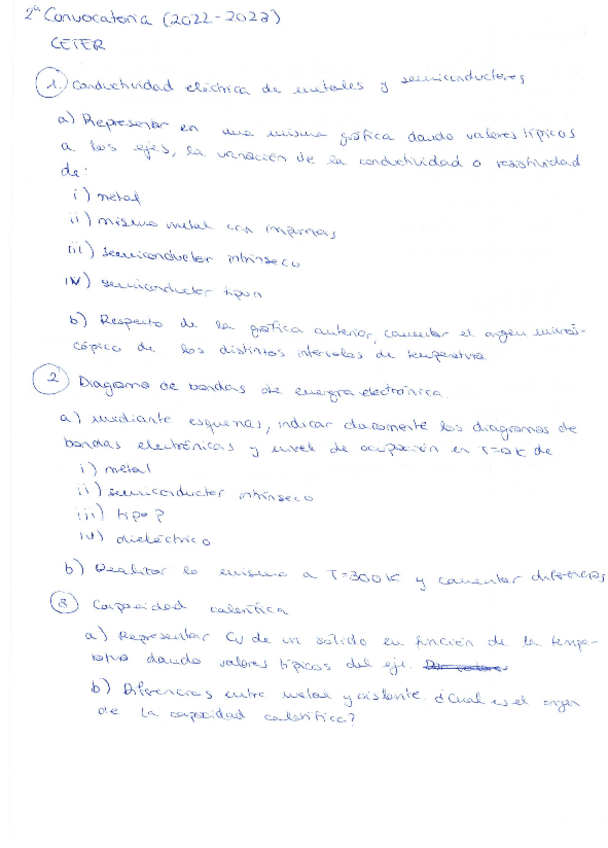 2ª Convocatoria (2022-2023)
CETER
1. Conductividad eléctrica de metales y semiconductores
a) Representar en una misma gráfica dando valores típicos
a los ejes, la variación de la conductividad o resistividad
de:
i) metal
ii) mismo metal con impurezas
iii) semiconductor intrínseco
iv) semiconductor tipo n
b) Respecto de la gráfica anterior, comentar el origen micros-
cópico de los distintos intervalos de temperatura.
2 Diagrama de bandas de energía electrónica.
a) mediante esquemas, indicar claramente los diagramas de
bandas electrónicas y nivel de ocupación en T=0K de
i) metal
ii) semiconductor intrínseco
iii) tipo p
iv) dieléctrico
b) Realizar lo mismo a T=300K y comentar diferencias
3 Capacidad calorífica
a) Representar Cv de un sólido en función de la tempe-
dando valores típicos del eje.
b) Diferencias entre metal y aislante. ¿Cual es el origen
de la capacidad calorífica?